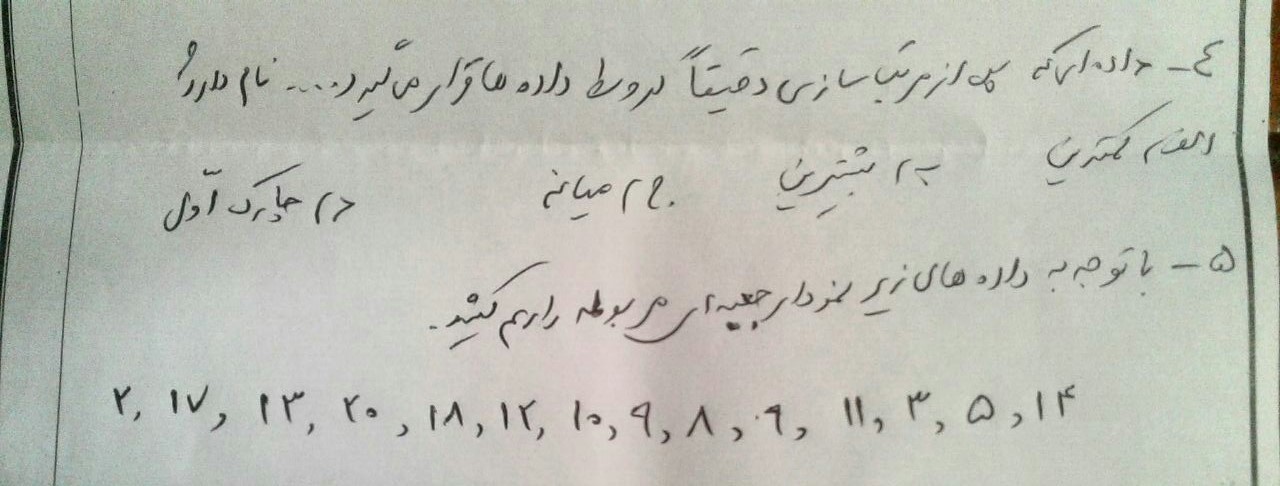 ٤- داده‌ای که پس از مرتب سازی دقیقاً در وسط داده ها قرار می گیرد .... نام دارد؟
الف) کمترین ب) بیشترین ج) میانه د) چارک اوّل
۵- با توجه به داده های زیر نمودار جعبه ای مربوطه را رسم کنید.
۲, ۱۷, ۱۳, ۲۰, ۱۸, ۱۲, ۱۰, ۹, ۸, ۹, ۱۱, ۳, ۵, ۱۴